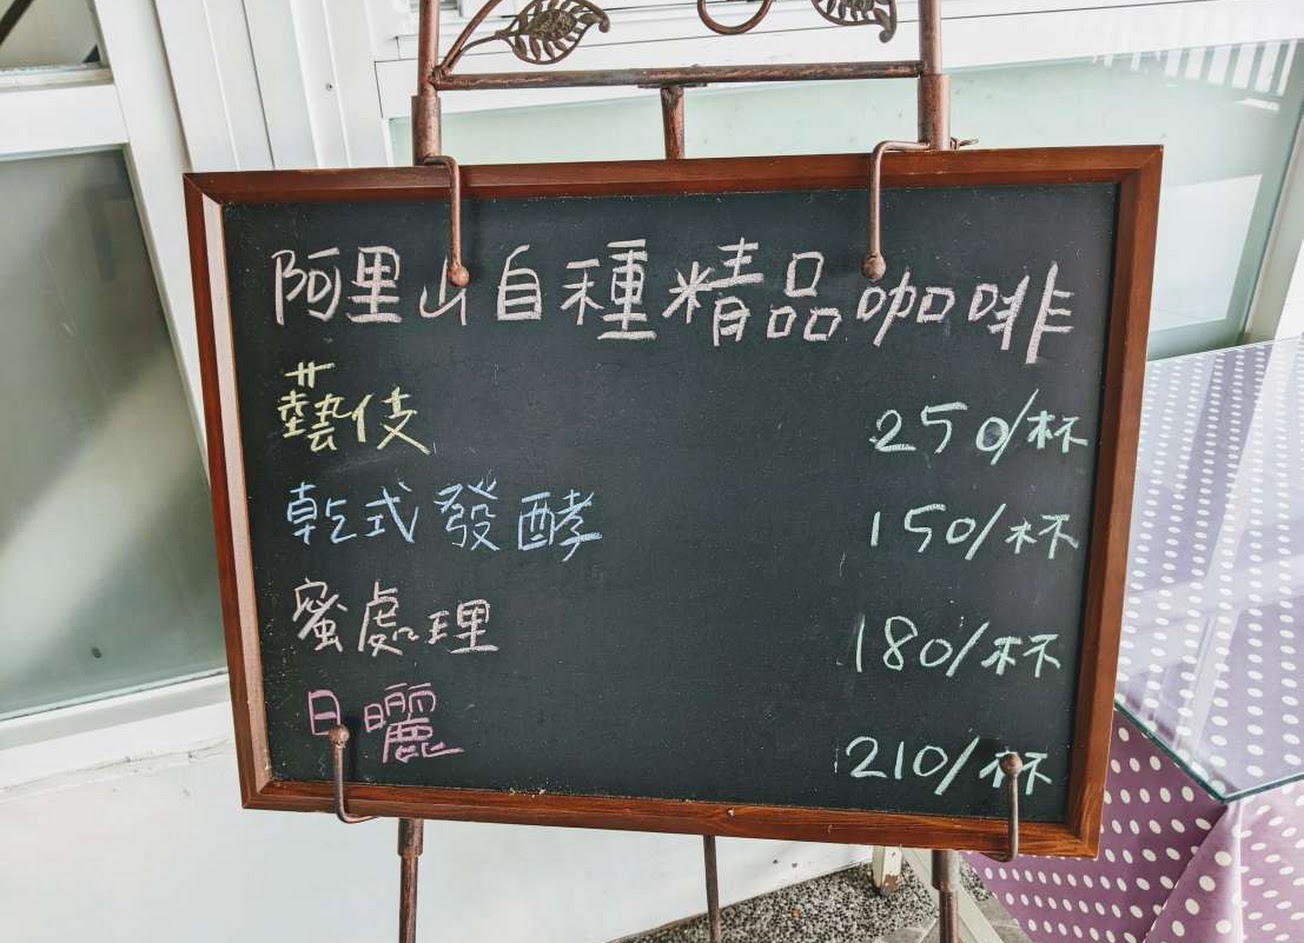 阿里山自種精品咖啡
藝伎 250/杯
乾式發酵 150/杯
蜜處理 180/杯
日曬 210/杯